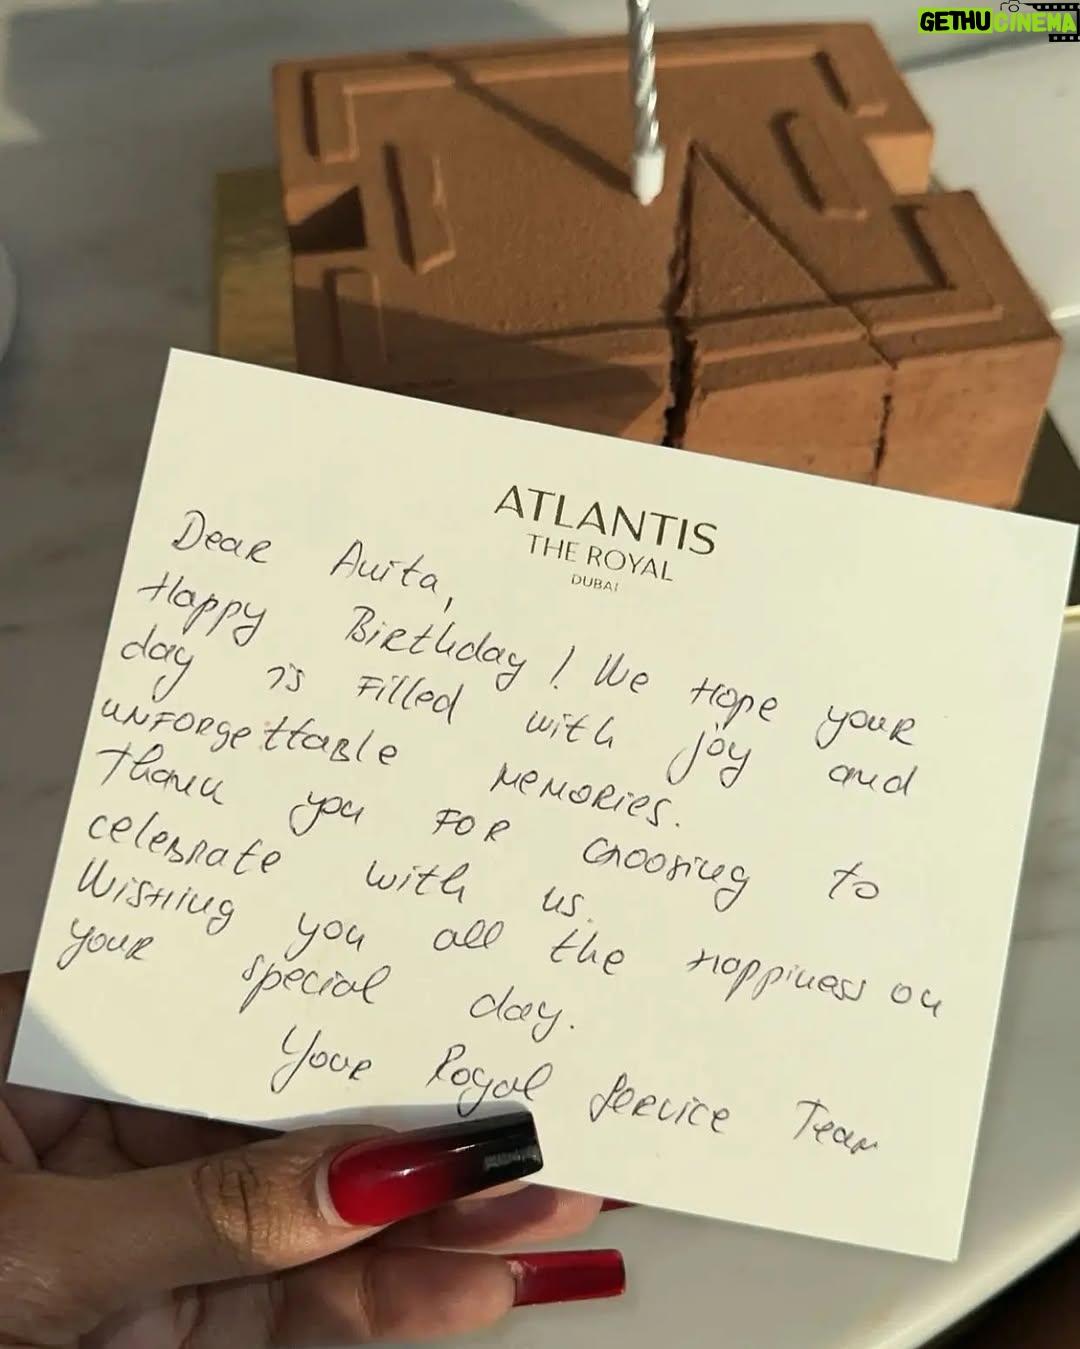 GETHU CINEMA
ATLANTIS
THE ROYAL
DUBAI
Dear Anita,
Happy Birthday! We Hope your
day is Filled with joy and
unforgettable memories.
Thank you for choosing to
celebrate with us.
Wishing you all the Happiness on
your special day.
Your Royal Service Team